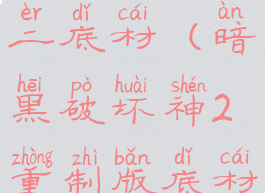 èr dǐ cái àn
二底材（暗
hēi pò huài shén
黑破坏神2
zhòng zhì bǎn dǐ cái
重制版底材